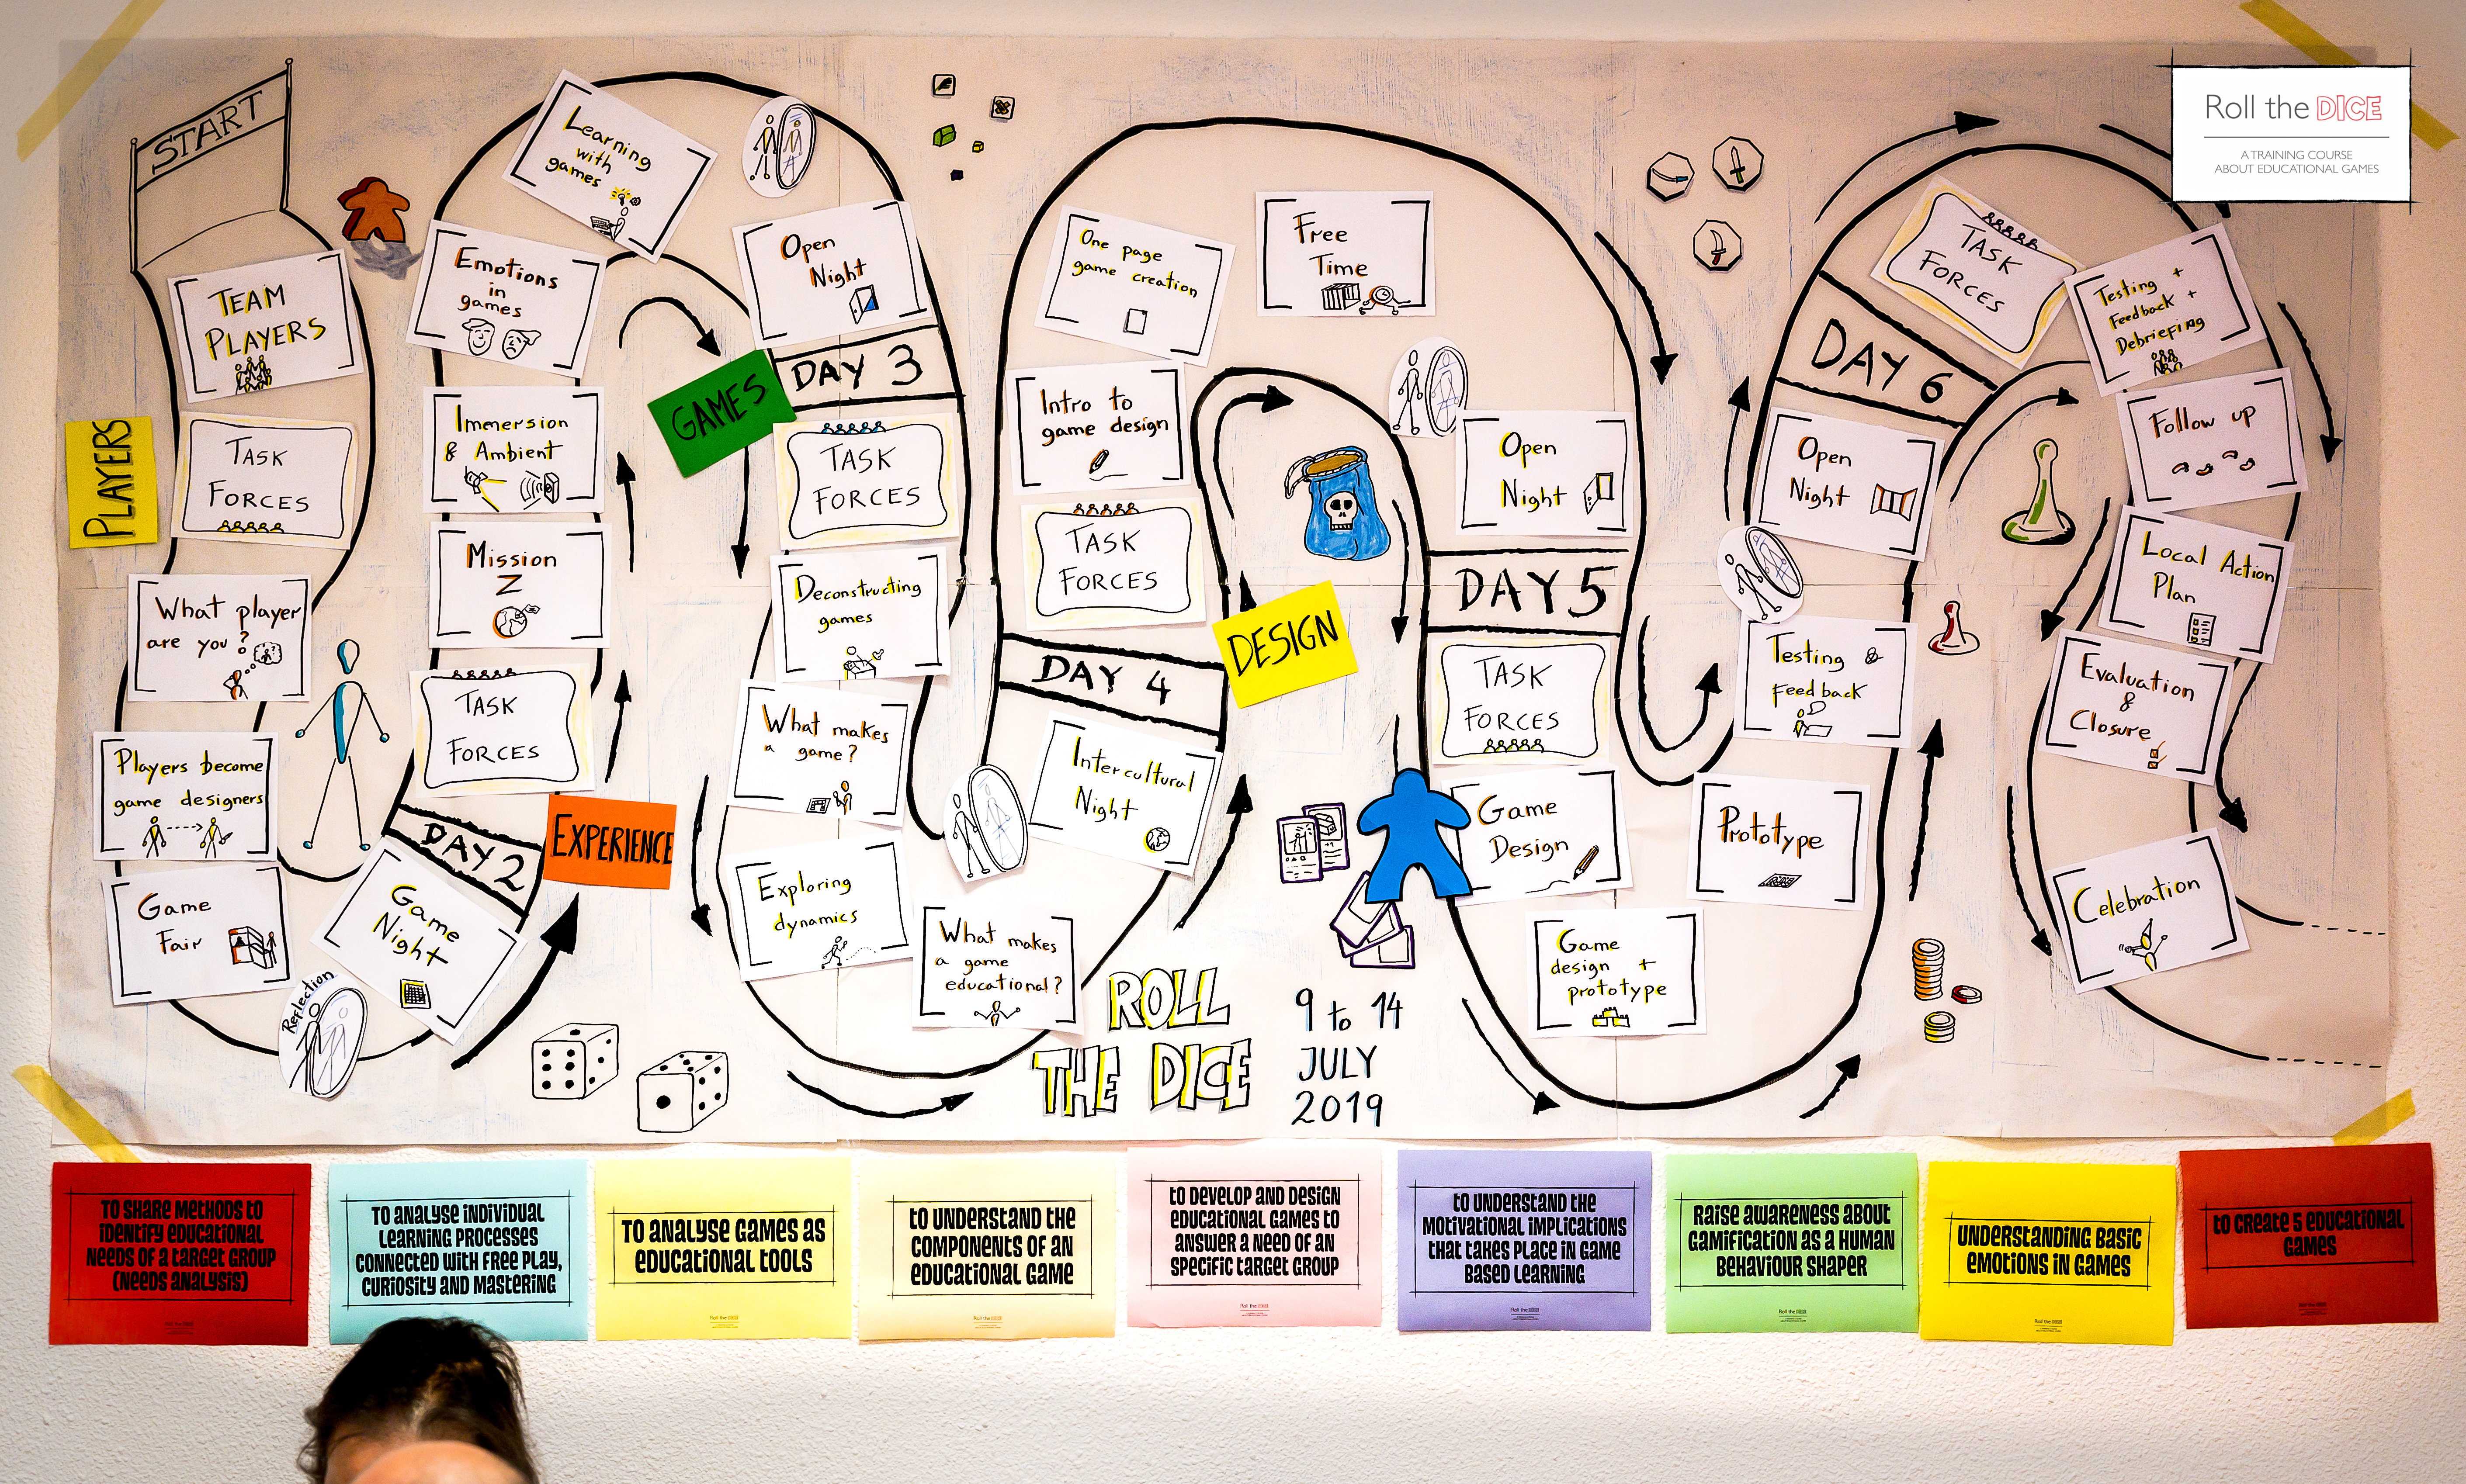 START
TEAM
PLAYERS
PLAYERS
TASK
FORCES
What player
are you?
Players become
game designers
Game
Fair
Reflection
Game
Night
DAY 2
EXPERIENCE
TASK
FORCES
Mission
Z
Immersion
& Ambient
Emotions
in
games
Learning
with
games
Open
Night
DAY 3
GAMES
TASK
FORCES
Deconstructing
games
What makes
a game?
Exploring
dynamics
What makes
a game
educational?
Intercultural
Night
DAY 4
DESIGN
TASK
FORCES
Intro to
game design
One page
game creation
Free
Time
Open
Night
DAY 5
TASK
FORCES
Game
Design
Game
design +
prototype
Prototype
Testing &
Feedback
Open
Night
DAY 6
TASK
FORCES
Testing +
Feedback +
Debriefing
Follow up
Local Action
Plan
Evaluation
&
Closure
Celebration
Roll the DICE
A TRAINING COURSE
ABOUT EDUCATIONAL GAMES
ROLL
THE DICE
9 to 14
JULY
2019
TO SHARE METHODS TO
IDENTIFY EDUCATIONAL
NEEDS OF A TARGET GROUP
(NEEDS ANALYSIS)
TO ANALYSE INDIVIDUAL
LEARNING PROCESSES
CONNECTED WITH FREE PLAY,
CURIOSITY AND MASTERING
TO ANALYSE GAMES AS
EDUCATIONAL TOOLS
Roll the DICE
TO UNDERSTAND THE
COMPONENTS OF AN
EDUCATIONAL GAME
Roll the DICE
TO DEVELOP AND DESIGN
EDUCATIONAL GAMES TO
ANSWER A NEED OF AN
SPECIFIC TARGET GROUP
Roll the DICE
TO UNDERSTAND THE
MOTIVATIONAL IMPLICATIONS
THAT TAKES PLACE IN GAME
BASED LEARNING
Roll the DICE
RAISE AWARENESS ABOUT
GAMIFICATION AS A HUMAN
BEHAVIOUR SHAPER
Roll the DICE
UNDERSTANDING BASIC
EMOTIONS IN GAMES
Roll the DICE
TO CREATE 5 EDUCATIONAL
GAMES